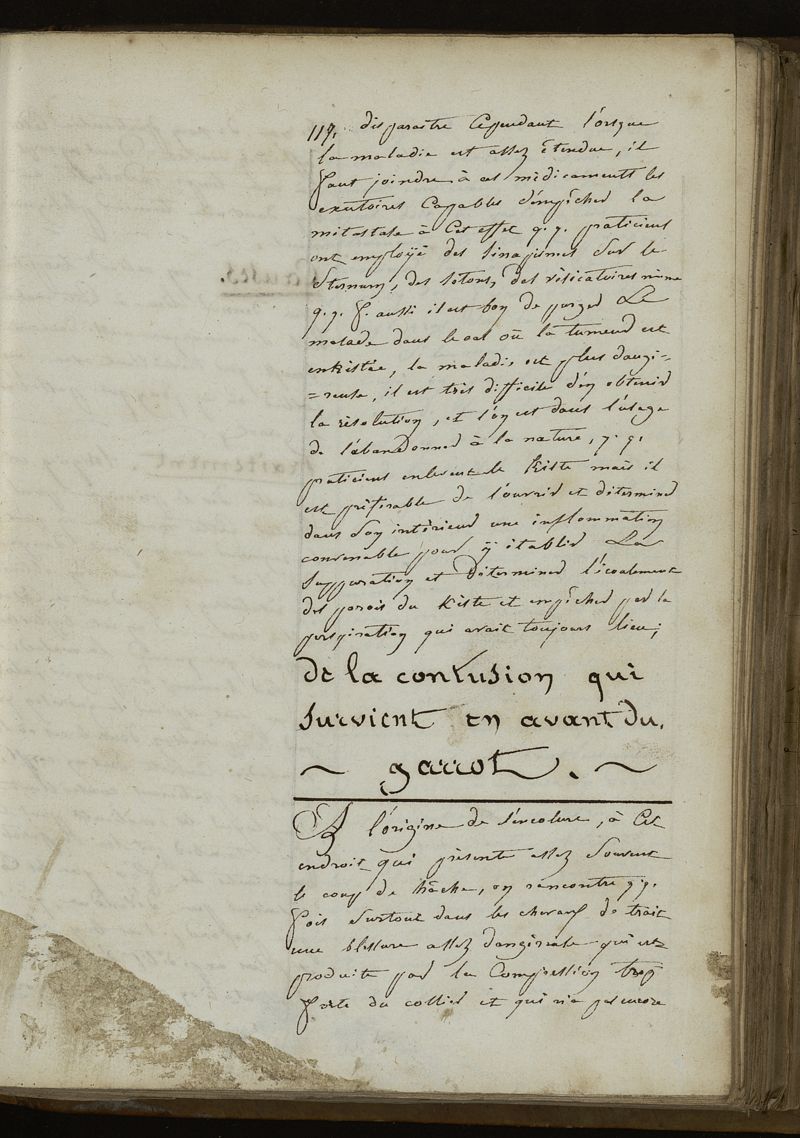 119. disparaitre Cependant l'orsque
la maladie est assez étendue, il
faut joindre à ces médicaments les
exutoires Capables d'empêcher la
mitastase à Cet effet q.q. praticiens
ont employé des sinapismes sur le
sternum, des sétons, des vésicatoires même
q.q. f. aussi il est bon de purger Le
malade dans le cas où la tumeur est
enkistée, la maladie est plus dangé=
=reuse, il est très difficile d'en obtenir
la résolution, et l'on est dans l'usage
de l'abandonner à la nature, q.q.
praticiens enlevent le Kiste mais il
est préférable de l'ouvrir et déterminer
dans son intérieur une inflammation
convenable pour ÿ établir La
suppuration et déterminer l'écoulement
des parois du Kiste et empêcher par la
perspiration qui avait toujours lieu;
de la contusion qui
survient en avant du.
~ garrot. ~
A l'origine de l'encolure, à Cet
endroit qui présente assez souvent
le coup de hâche, on rencontre q.q.
fois surtout dans les chevaux de trait
une blessure assez dangereuse qui est
produite par la Compression trop
forte du collier et qui n'a pas encore
Causes.
traitement.